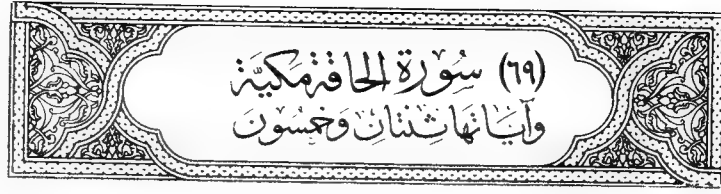 (٦٩) سُورَة الحَاقَّة مَكيَّة
وَآيَاتهَا ثِنتَانِ وَخَمسُون